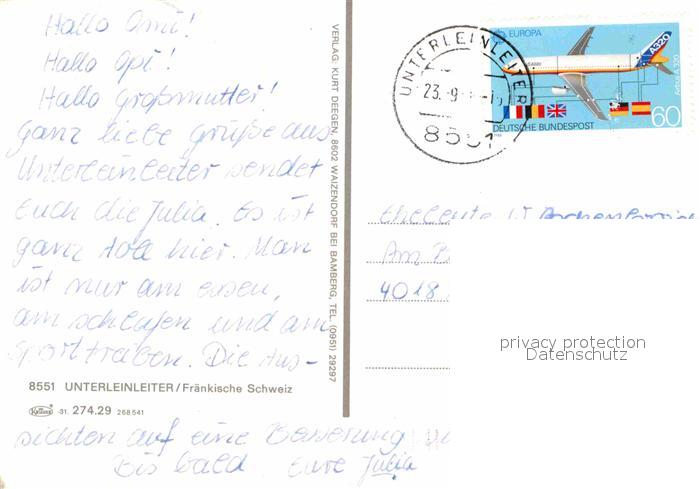 Hallo Omi!
Hallo Opi!
Hallo Großmutter!
Ganz liebe Grüße aus
Unterleinleiter sendet
Euch die Julia. Es ist
ganz toll hier. Man
ist nur am essen,
am schlafen und am
Sporttreiben. Die Aus-
8551 UNTERLEINLEITER/Fränkische Schweiz
Krüger -31. 274.29 268 541
sichten auf eine Besserung
Bis bald Eure Julia
VERLAG: KURT DEEGEN, 8602 WAIZENDORF BEI BAMBERG, TEL. (0951) 29297
UNTERLEINLEITER
23.-9.
8551
EUROPA
A320
DEUTSCHE BUNDESPOST
60
Eheleute
Am
4018
privacy protection
Datenschutz